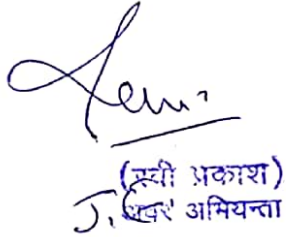 (रवी प्रकाश)
J.E अवर अभियन्ता